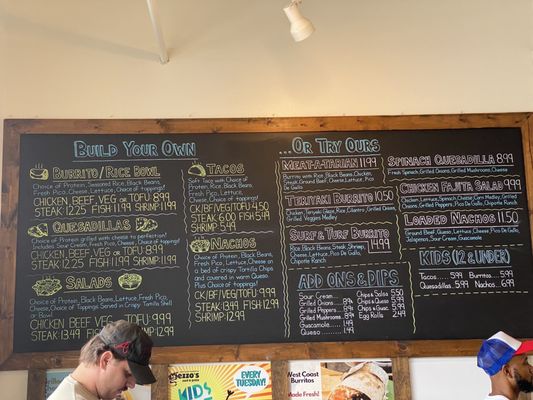 Build Your Own
Burrito/Rice Bowl
Choice of Protein, Seasoned Rice, Black Beans,
Fresh Pico, Cheese, Lettuce, Choice of toppings!
Chicken, Beef, Veg or Tofu 8.99
Steak 12.25 Fish 11.99 Shrimp 11.99
Quesadillas
Choice of Protein grilled with cheese to perfection!
Includes: Sour Cream, Fresh Pico, Choice of Toppings
Chicken, Beef, Veg or Tofu 8.99
Steak 12.25 Fish 11.99 Shrimp 11.99
Salads
Choice of Protein, Black Beans, Fresh Pico, Lettuce,
Cheese, Choice of Toppings Served in Crispy Tortilla Shell
or Bowl
Chicken Beef Veg
Steak 13.49 Fish 12.99
Tacos
Soft Taco with Choice of
Protein, Black Beans, Fresh
Pico, Lettuce, Cheese and
Choice of Toppings!
CK/BF/Veg/Tofu 4.50
Steak 6.00 Fish 5.49
Shrimp 5.49
Nachos
Choice of Protein, Black Beans,
Fresh Pico, Lettuce, Cheese on
a bed of crispy Tortilla Chips
and covered in warm Queso
Plus Choice of toppings!
CK/BF/Veg/Tofu 9.99
Steak 13.49 Fish 12.99
Shrimp 12.99
...Or Try Ours
Meat-A-Tarian 11.99
Burrito with Rice, Black Beans, Chicken,
Steak, Ground Beef, Cheese, Lettuce, Pico
De Gallo
Teriyaki Burrito 10.50
Chicken, Teriyaki Glaze, Rice, Cilantro, Grilled Onions,
Grilled Veggies Medley
Surf & Turf Burrito
Rice, Black Beans, Steak, Shrimp,
Cheese, Lettuce, Pico De Gallo,
Chipotle Ranch
14.99
Add Ons & Dips
Sour Cream .59
Grilled Onions .89
Grilled Peppers .89
Grilled Mushrooms .89
Guacamole 1.49
Queso 1.49
Chips & Salsa 5.50
Chips & Queso 5.99
Chips & Guac 5.99
Egg Rolls 2.49
Spinach Quesadilla 8.99
Fresh Spinach, Grilled Onions, Grilled Mushrooms, Cheese
Chicken Fajita Salad 9.99
Lettuce, Spinach, Black Beans, Cheese, Corn Medley, Grilled
Onions, Grilled Peppers, Pico De Gallo, Chipotle Ranch
Loaded Nachos 11.50
Ground Beef, Queso, Lettuce, Cheese, Pico De Gallo,
Jalapenos, Sour Cream, Guacamole
Kids (12 & Under)
Tacos.....5.99 Burritos.....5.99
Quesadillas 5.99 Nachos.....6.99
Kids
Every
Tuesday
West Coast
Burritos
Made Fresh!
We